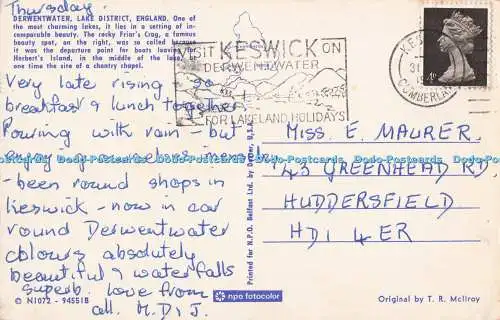 Thursday.
DERWENTWATER, LAKE DISTRICT, ENGLAND. One of
the most charming lakes, it lies in a setting of in-
comparable beauty. The rocky Friar's Crag, a famous
beauty spot, on the right, was so called because
it was the departure point for boats leaving for
Herbert's Island, in the middle of the lake, at
one time the site of a chantry chapel.
VISIT KESWICK ON
DERWENTWATER
FOR LAKELAND HOLIDAYS
CUMBERLAND
Very late rising, so
breakfast & lunch together.
Pouring with rain - but
enjoying ourselves immensely
- been round shops in
Keswick - now in car
round Derwentwater
colours absolutely
beautiful & waterfalls
superb. Love from
all. M.D.J.
MISS E. MAURER,
43 GREENHEAD RD,
HUDDERSFIELD
HD1 4ER
Printed for N.P.O. Belfast Ltd. by Dexter, U.S.A.
© N1072 - 94551B
npo fotocolor
Original by T. R. McIlroy
Dodo-Postcards Dodo-Postcards Dodo-Postcards Dodo-Postcards Dodo-Postcards